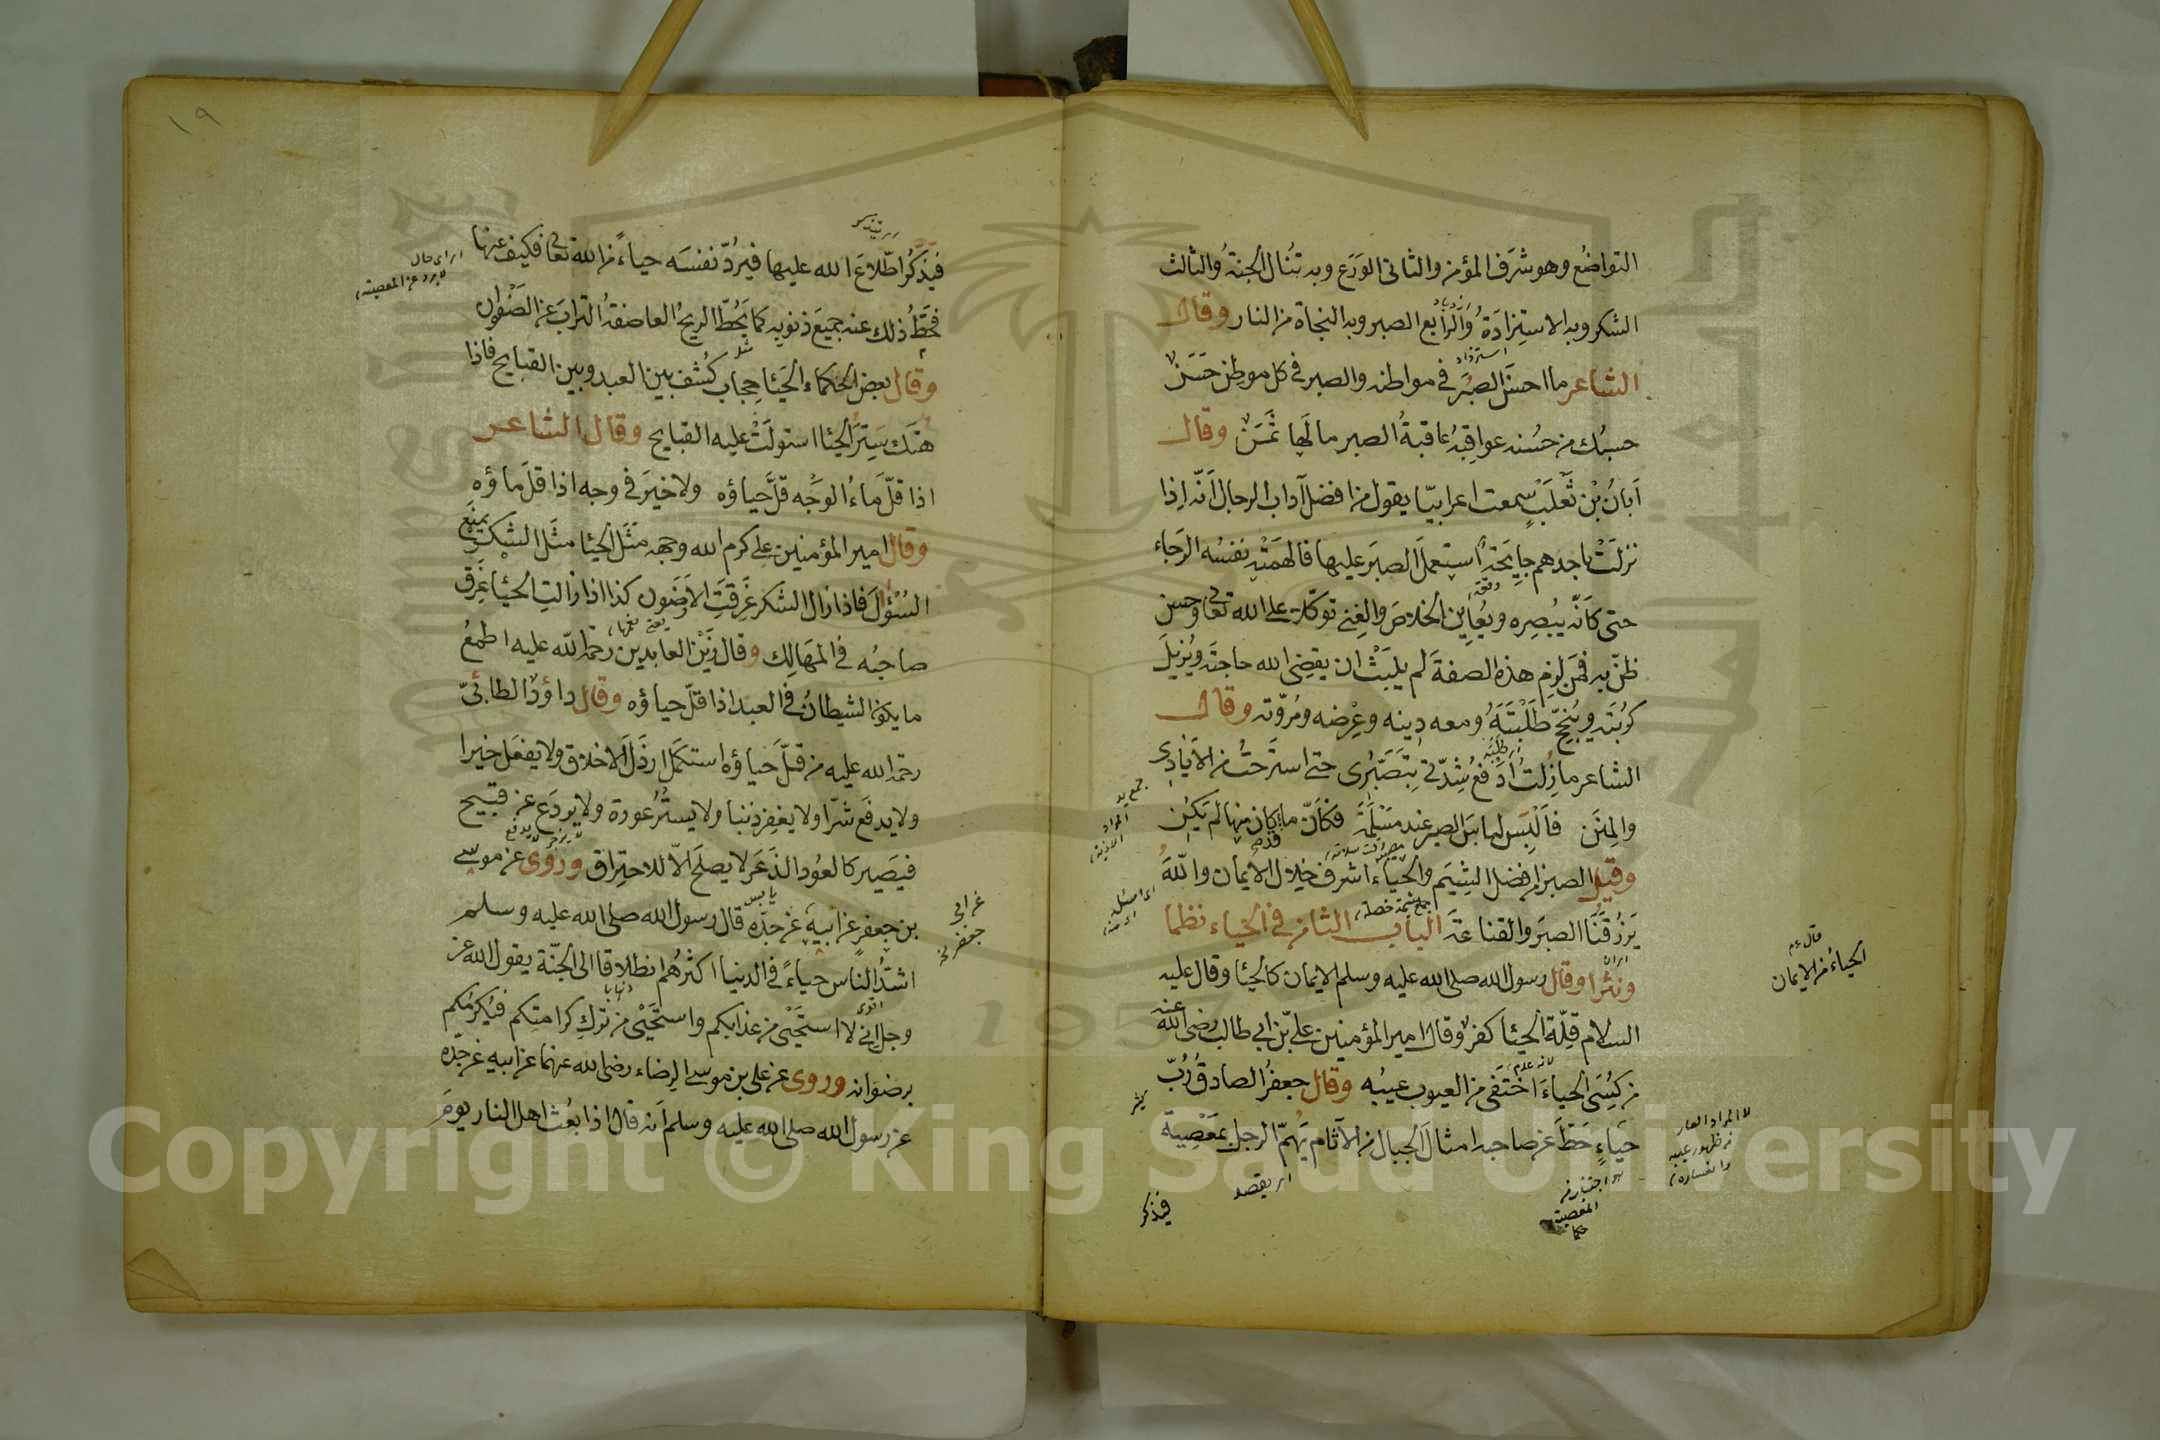 التواضُع وهو شرَف المؤمن والثانى الوَرَع وبه تُنال الجنةُ والثالث
الشكر وبه الاستِزادَةُ وَالرَّابع الصبر وبه النجاة من النار وقال
الشاعر ما احسنَ الصبرَ فى مواطنه والصبر فى كل موطِن حَسَنٌ
حسبُك من حُسْنه عواقِبُه عاقبةُ الصبر ما لَها ثَمَن وقال
اَبانُ بْن ثَعْلَبٍ سمعت اعرابيّا يقول من افضل آداب الرجال اَنّه اِذا
نزلتْ باحدهم جايحة استعمل الصبرَ عليها فالهمَتْه نفسُه الرَجاء
حتى كاَنّه يُبصِره ويُعايِن الخلاصَ والغِنى توكّلا على الله تعالى وحسن
ظنّ به فمَن لزِم هذه الصفةَ لم يلبَثْ ان يقضِى الله حاجتَه ويُزيلَ
كُرْبتَه ويُنجِحَ طَلَبْتَهُ ومعه دِينه وعِرْضه ومُروّته وقال
الشاعر ما زِلتُ اَدفعُ شِدّتى بتَصَبّرى حتى استرَحتُ من الاَيادِى
والمِنَن فاَلْبَس لباسَ الصبر عند مُسلِمَّة فكاَنّ ما كان منها لم يَكُن
وقيل الصبر من افضل الشِيَم والحياء اشرف خِلال الاِيمان واللّٰهُ
يَرزُقَنَا الصبرَ والقناعةَ الباب الثامن فى الحياء نظما
ونثرا وقال رسول الله صلى الله عليه وسلم الايمان كالحيا وقال عليه
السلام قِلّة الحيا كفرٌ وقال امير المؤمنين على بّن ابى طالب رضى الله عنه
من كُسِىَ الحياءَ اختَفى من العيوب عيبُه وقال جعفرُ الصادقُ رُبّ
حَياءٍ حَطّ عن صاحبه امثالَ الجبال من الآثام يَهُمّ الرجل بمَعْصِيَةٍ
فيذكر
قال عم
الحياءُ من الايمان
لا المراد العار
من ظهور عيبه
اى يقصد
المعصية
جمع يد
المراد
١٩
فيَذكُر اطّلاعَ الله عليها فيرُدّ نفسَه حياءً من الله تعالى فكيف عنها
فحَطّ ذلك عنه جميعَ ذنوبه كما تَحُطّ الريحُ العاصفةُ الترابَ عن الصَفْوان
وقال بعض الحكماء الحَيَا حِجاب كُشف بين العبد وبين القبايح فاذا
هَتَك سِترَ الحَيا استولَتْ عليه القبايح وقال الشاعر
اذا قلّ ماءُ الوجْه قلّ حياؤه ولا خيرَ فى وجه اذا قلّ ماؤه
وقال امير المؤمنين على كرم الله وجهه مَثَل الحَيا مثَل السّكر يمنع
السُؤالَ فاذا زال السّكر غَرِقتِ الارَضُون كذا اذا زالتِ الحَيا غَرِق
صاحِبُه فى المَهالِك وقال زَيْن العابدين رحمة اللّه عليه اطمعُ
ما يكون الشيطانُ فى العبد اذا قلّ حياؤه وقال داؤدُ الطائىّ
رحمة الله عليه من قلّ حَياؤه استكمَل ارذَل الاخلاق ولا يفعَل خيرا
ولا يدفَع شرّا ولا يغفِر ذنبا ولا يستُرُ عورة ولا يردَع عن قبيح
فيَصير كالعُود الذَعِر لا يصلَح الاّ للاحتِراق ورَوَى عن موسى
بن جعفر عن ابيهِ عن جدّه قال رسول الله صلى الله عليه وسلم
اشدُّ الناس حياءً فى الدنيا اكثرُهم انطلاقا الى الجنّة يقول الله عز
وجل اِنى لا استَحْيى من عذابكم واستَحْيى من تَرْك كرامتِكم فيُكرِمُكم
برضوانه وروى عن على بن موسى الرضاء رضى الله عنهما عن ابيه عن جدّه
عن رسول الله صلى الله عليه وسلم اَنه قال اذا بعُث اهل النار يومَ
عن ابى
جعفر
لا يرد عن المعصية
يابس
Copyright © King Saud University
1957